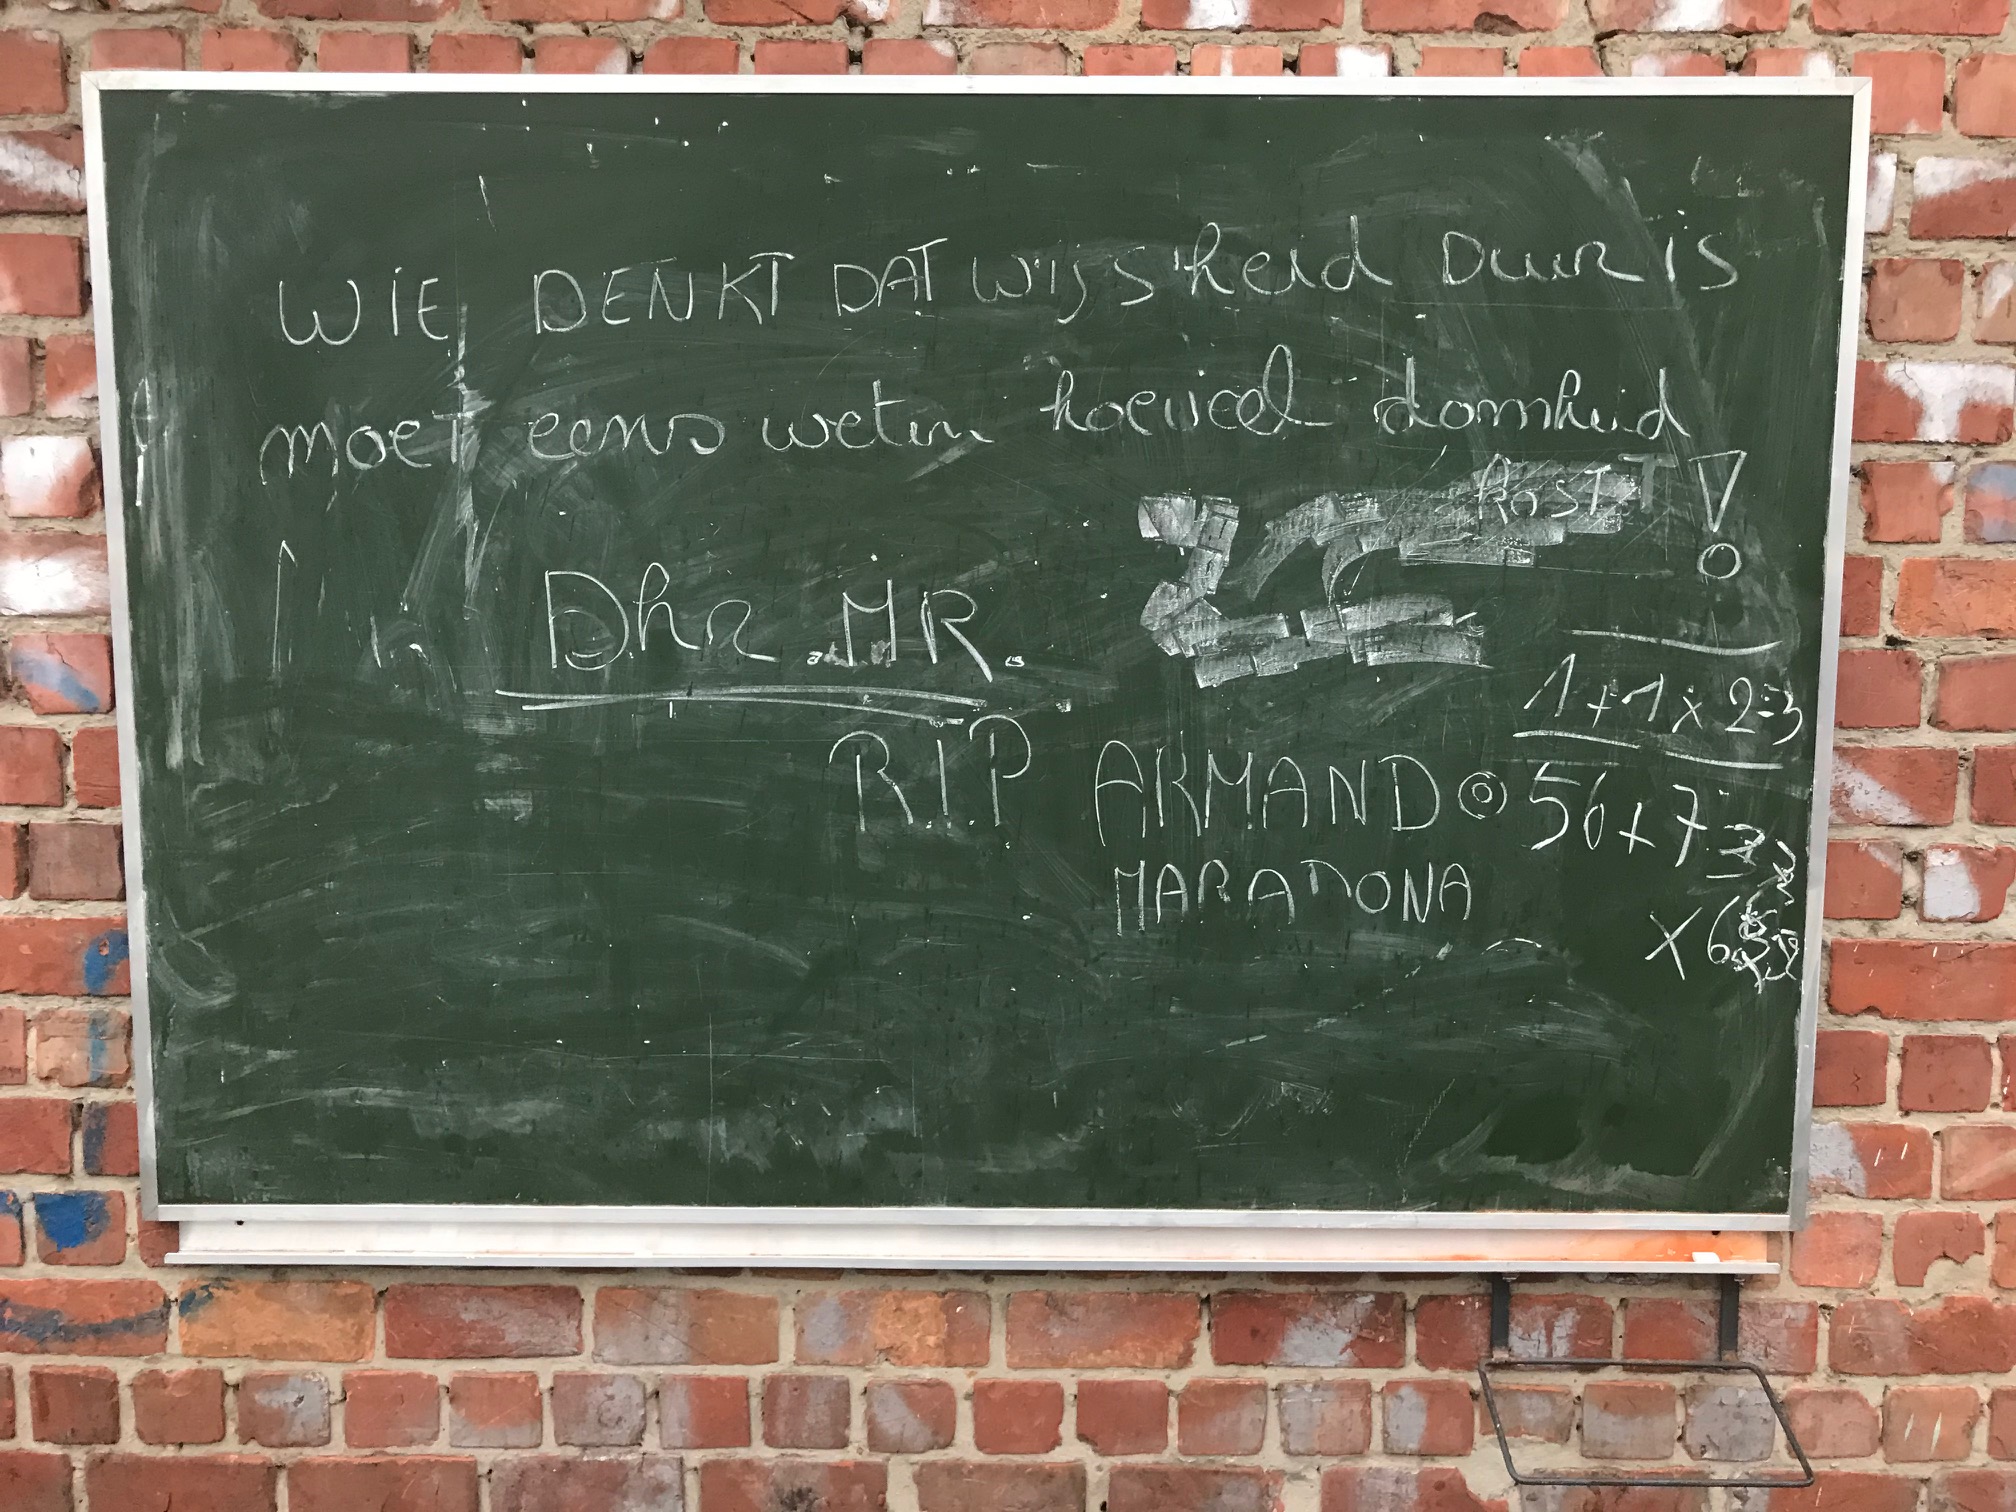 WIE DENKT DAT WIJSheid Duur is
moet eens weten hoeveel domheid
KOST !
Dhr. MR.
1+1x2=3
R.I.P ARMAND
56x7=
MARADONA
x6